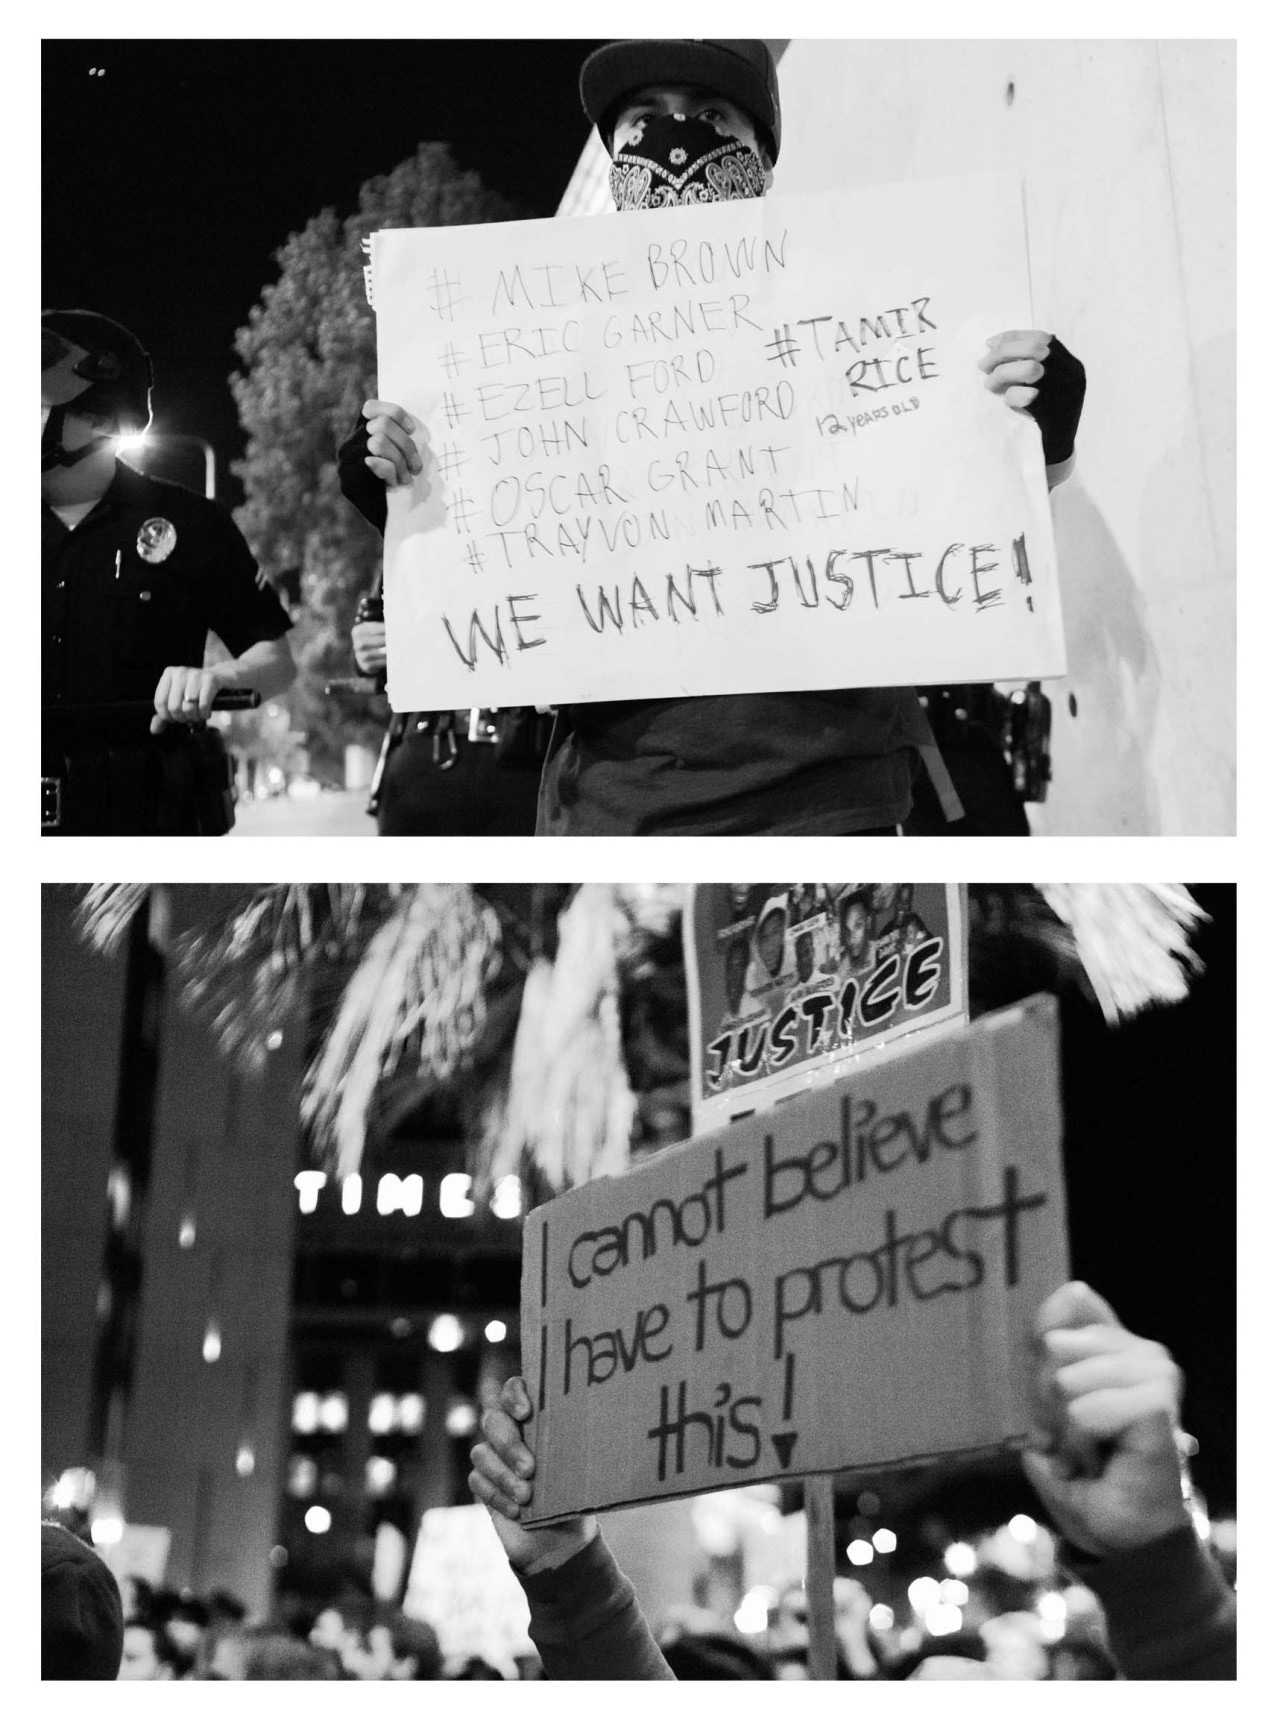 # MIKE BROWN
# ERIC GARNER
# EZELL FORD
# JOHN CRAWFORD
# OSCAR GRANT
# TRAYVON MARTIN
#TAMIR
RICE
12 YEARS OLD
WE WANT JUSTICE!
JUSTICE
TIMES
I cannot believe
I have to protest
this!